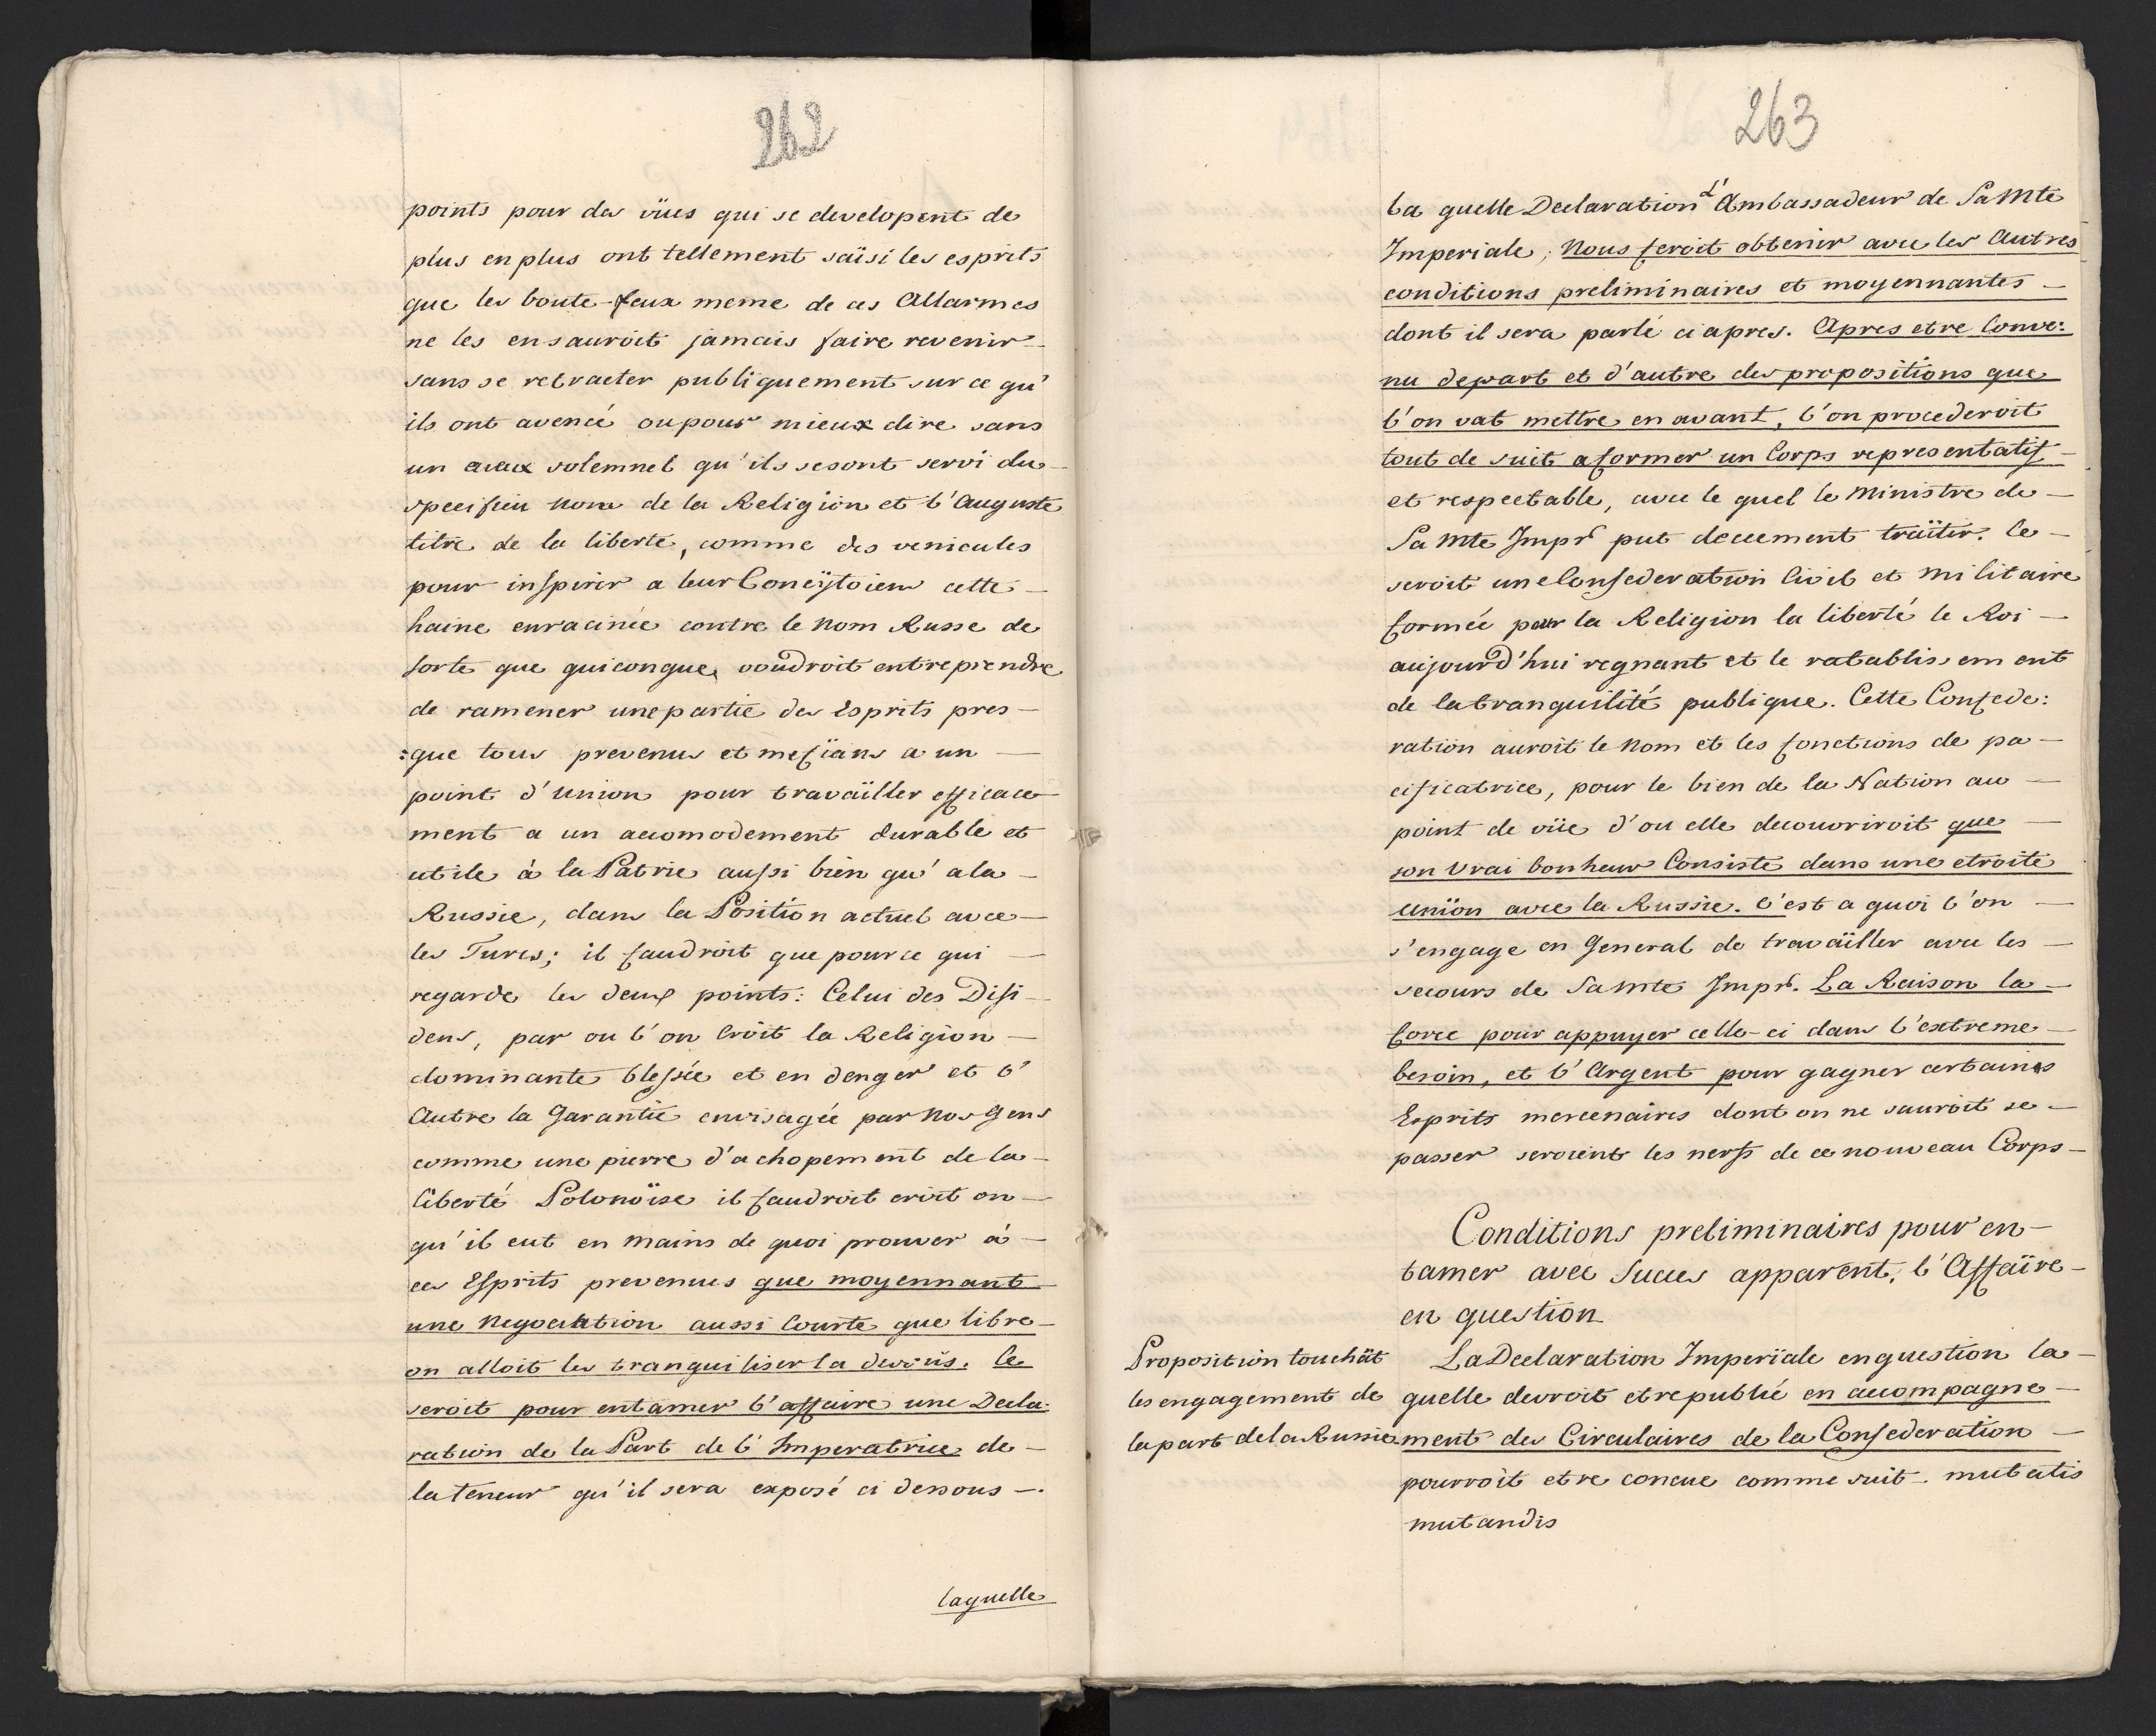 262
points pour des vües qui se developent de
plus en plus ont tellement saïsi les esprits
que les boute-feux meme de ces Allarmes
ne les en sauroit jamais faire revenir
sans se retracter publiquement sur ce qu'
ils ont avencé ou pour mieux dire sans
un aveux solemnel qu'ils se sont servi du
specifieu nom de la Religion et l'Auguste
titre de la liberte, comme des venicules
pour inspirer a leur Concÿtoiens cette
haine enracinée contre le nom Russe de
sorte que quiconque voudroit entreprendre
de ramener une partie des Esprits pres-
:que tous prevenus et mefïans a un
point d'union pour travaïller efficace
ment a un accomodement durable et
utile à la Patrie aussi bien qu'a la
Russie, dans la Position actuel avec
les Turcs; il faudroit que pour ce qui
regarde les deux points: Celui des Disi-
dens, par ou l'on Croit la Religion
dominante blessée et en denger et l'
Autre la Garantie envisagée par nos Gens
comme une pierre d'achopement de la
liberté Polonoïse il faudroit croit on
qu'il eut en mains de quoi prouver à
ces Esprits prevenues que moyennant
une Negociation aussi Courte que libre
on alloit les tranquiliser la dessus. Ce
seroit pour entamer l'affaire une Decla:
ration de la Part de l'Imperatrice de
la teneur qu'il sera exposé ci dessous
laquelle
263
la quelle Declaration l'Ambassadeur de Sa Mte
Imperiale, Nous feroit obtenir avec les Autres
conditions preliminaires et moyennantes
dont il sera parlé ci apres. Apres etre Conve:
nu depart et d'autre des propositions que
l'on vat mettre en avant, l'on procederoit
tout de suit a former un Corps representatif
et respectable, avec le quel le Ministre de
Sa Mte Impr put decement traïter. Ce
seroit une Confederation Civil et Militaire
formée pour la Religion la liberté le Roi
aujourd'hui regnant et le ratablissement
de la tranquilité publique. Cette Confede:
ration auroit le Nom et les fonctions de pa
cificatrice, pour le bien de la Nation au
point de vüe d'ou elle decouvriroit que
son vrai bonheur Consiste dans une etroite
union avec la Russie. C'est a quoi l'on
s'engage en General de travaïller avec les
secours de Sa Mte Impr. La Raison la
force pour appuyer celle-ci dans l'extreme
besoin, et l'Argent pour gagner certaines
Esprits mercenaires dont on ne sauroit se
passer seroient les nerfs de ce nouveau Corps
Conditions preliminaires pour en-
tamer avec Succes apparent, l'Affaïre
en question
Proposition touchãt
les engagement de
la part de la Russie
La Declaration Imperïale en question la
quelle devroit etre publié en accompagne
ment des Circulaires de la Confederation
pourroit etre concue comme suit mutatis
mutandis